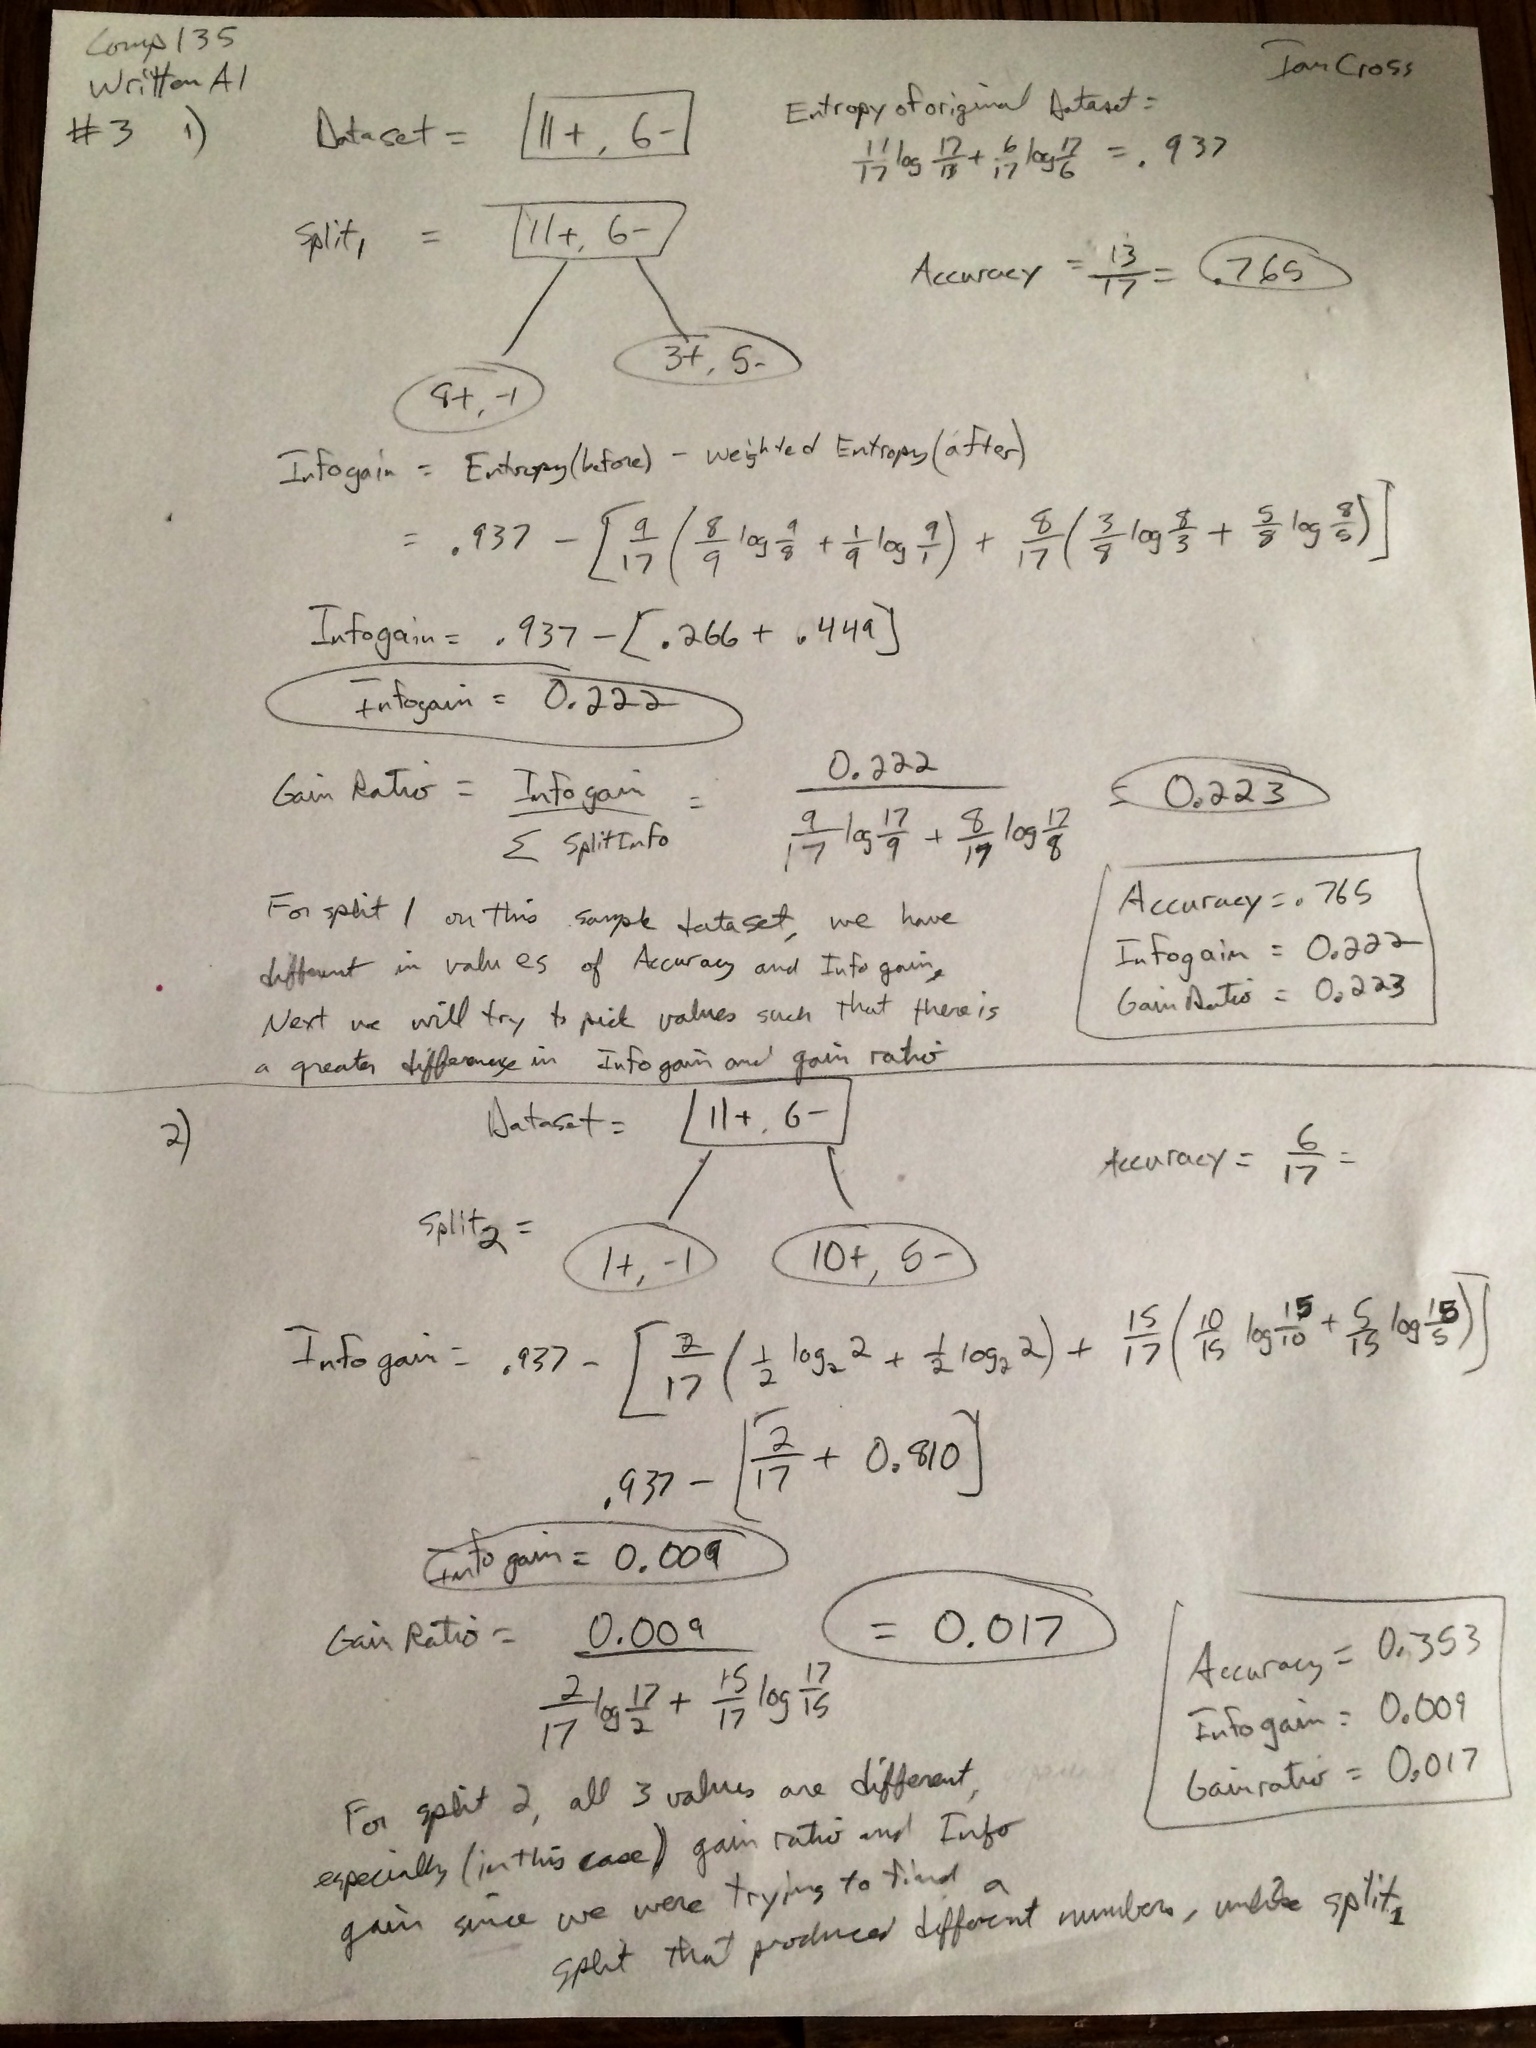 Comp 135
Written A1
Ian Cross
#3 1) Dataset = 11+, 6-
Entropy of original Dataset =
11/17 log 17/11 + 6/17 log 17/6 = .937
Split₁ = 11+, 6-
Accuracy = 13/17 = .765
8+, -1
3+, 5-
Infogain = Entropy(before) - weighted Entropy(after)
= .937 - [9/17 (8/9 log 9/8 + 1/9 log 9/1) + 8/17 (3/8 log 8/3 + 5/8 log 8/5)]
Infogain = .937 - [.266 + .449]
Infogain = 0.222
Gain Ratio = Infogain / Σ SplitInfo = 0.222 / (9/17 log 17/9 + 8/17 log 17/8) = 0.223
For split 1 on this sample dataset, we have
different in values of Accuracy and Infogain.
Next we will try to pick values such that there is
a greater difference in Infogain and gain ratio
Accuracy = .765
Infogain = 0.222
Gain Ratio = 0.223
2) Dataset = 11+, 6-
Accuracy = 6/17 =
Split₂ = 1+, -1
10+, 5-
Infogain = .937 - [2/17 (1/2 log₂ 2 + 1/2 log₂ 2) + 15/17 (10/15 log 15/10 + 5/15 log 15/5)]
.937 - [2/17 + 0.810]
Infogain = 0.009
Gain Ratio = 0.009 / (2/17 log 17/2 + 15/17 log 17/15) = 0.017
Accuracy = 0.353
Infogain = 0.009
Gain ratio = 0.017
For split 2, all 3 values are different,
especially (in this case) gain ratio and Info
gain since we were trying to find a
split that produced different numbers, unlike split 1